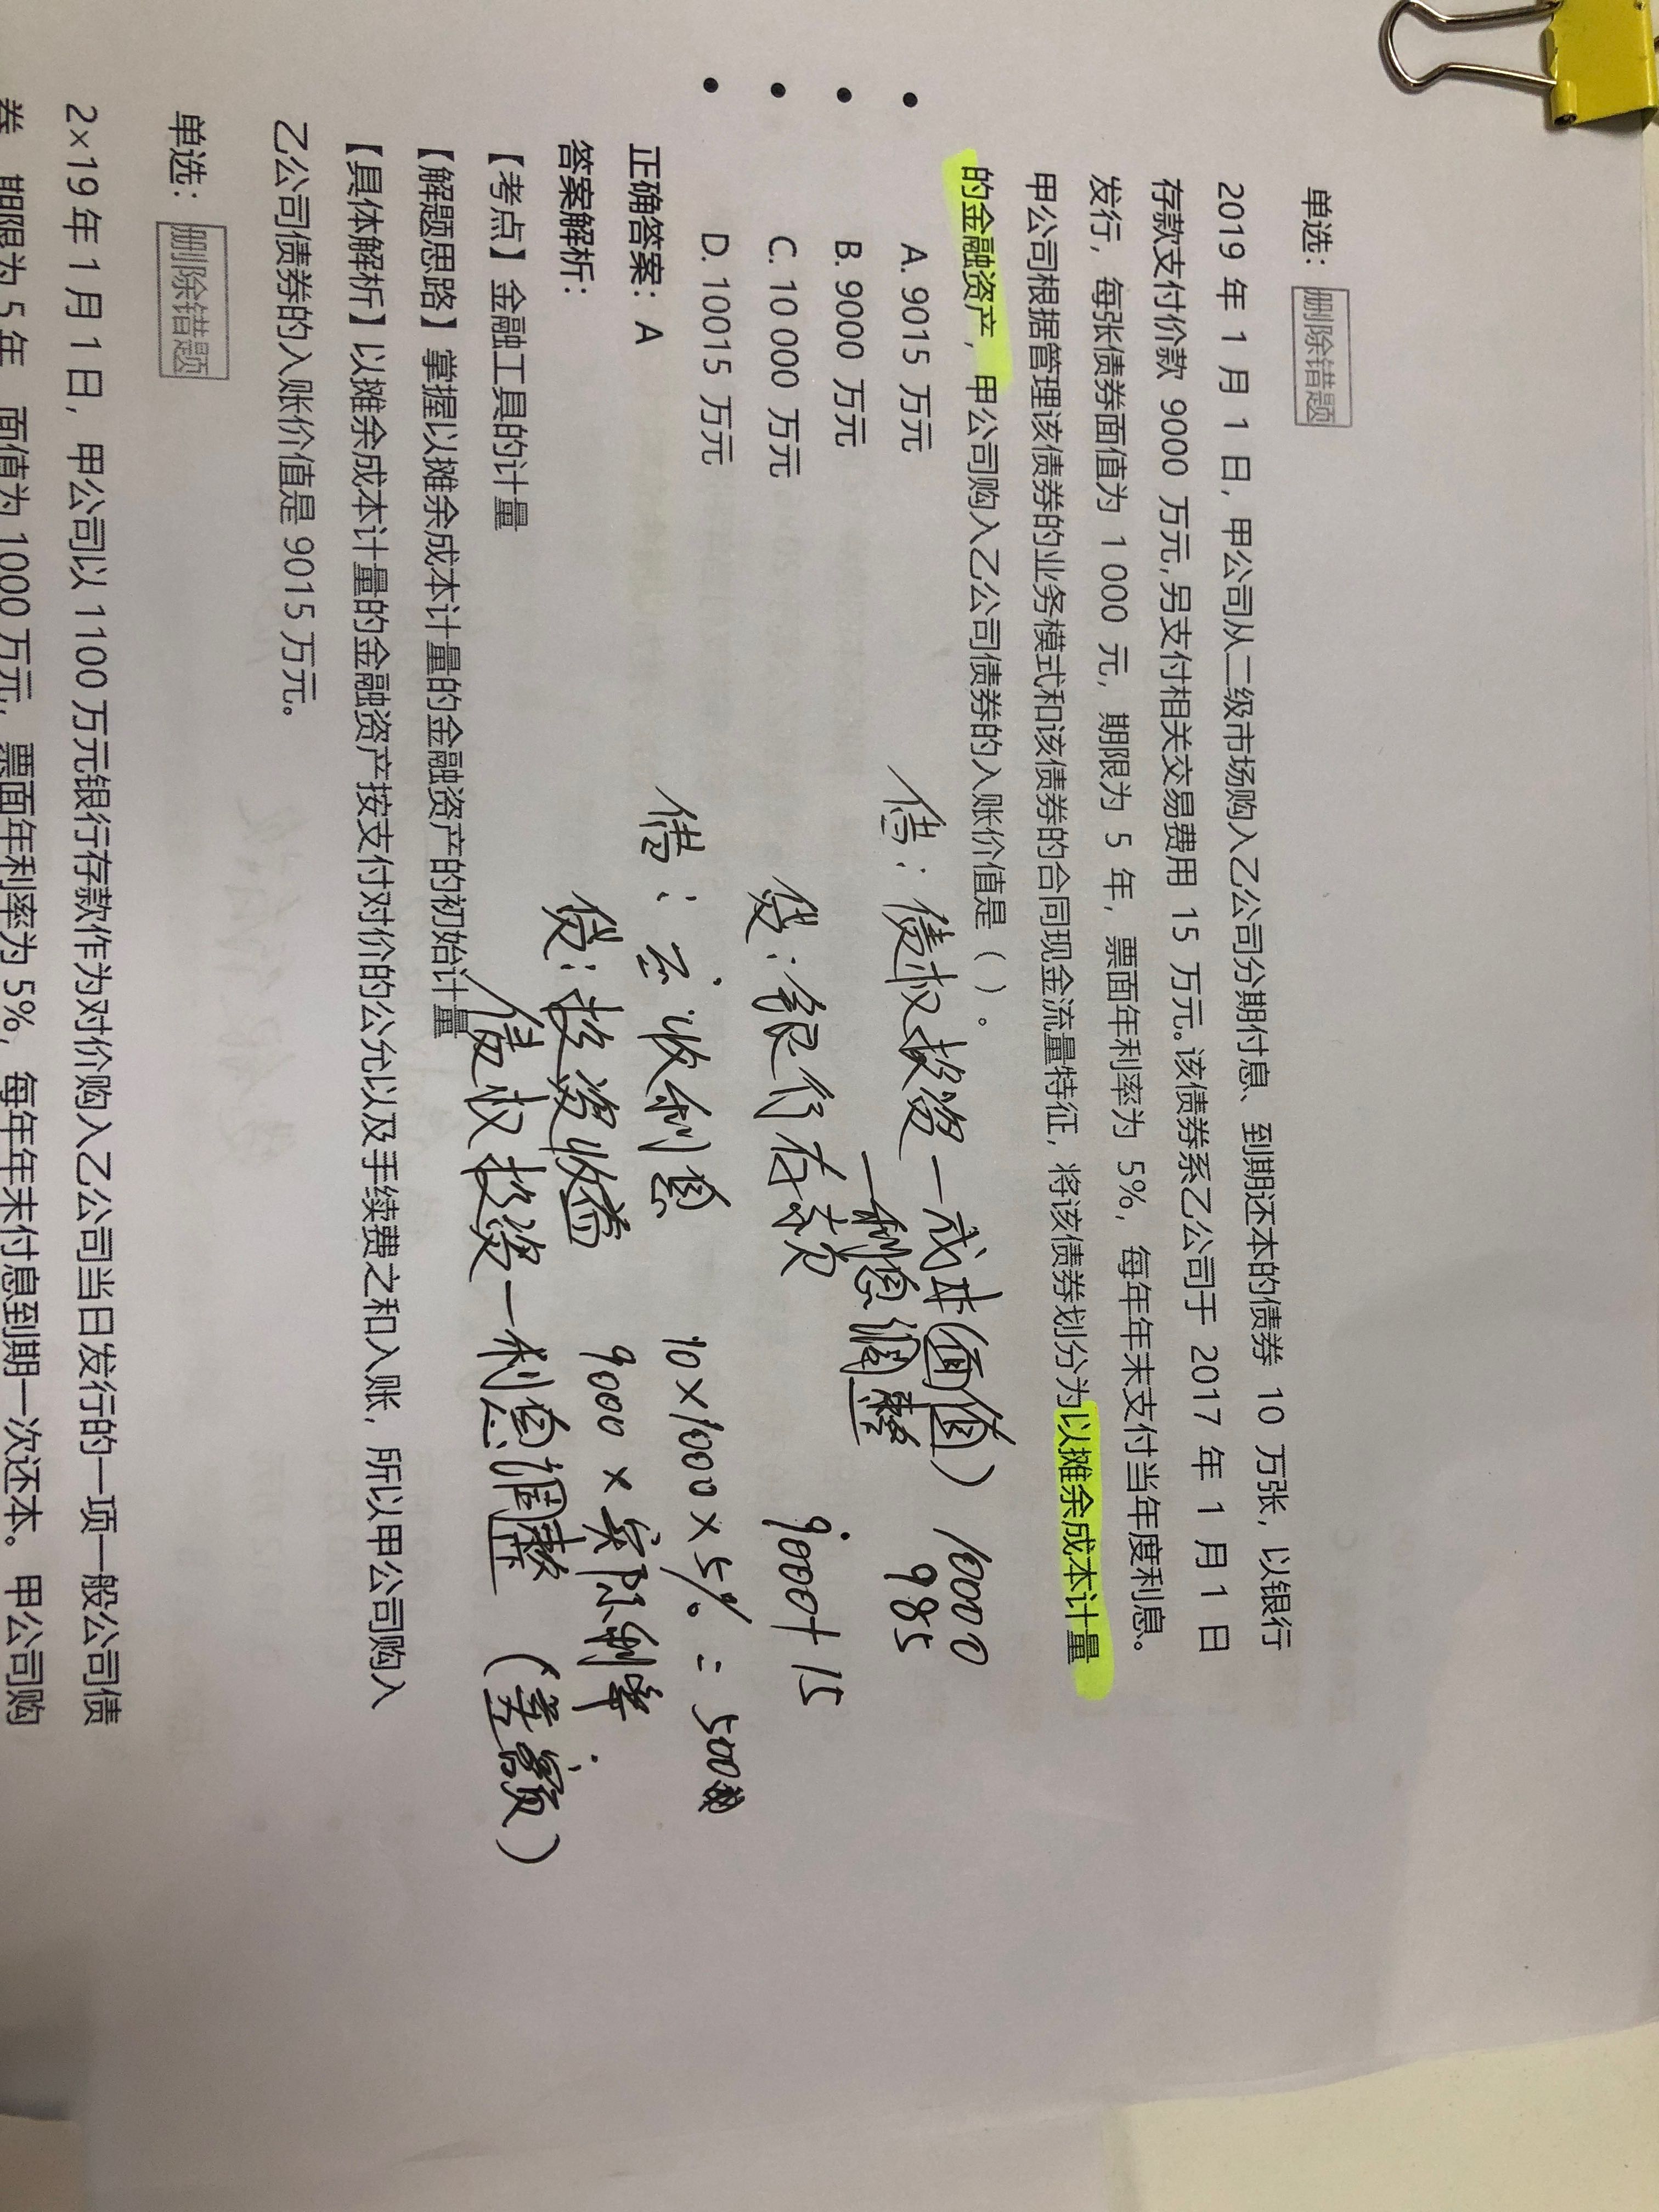 单选： 删除错题
2019 年 1 月 1 日，甲公司从二级市场购入乙公司分期付息、到期还本的债券 10 万张，以银行
存款支付价款 9000 万元,另支付相关交易费用 15 万元。该债券系乙公司于 2017 年 1 月 1 日
发行，每张债券面值为 1 000 元，期限为 5 年，票面年利率为 5%，每年年末支付当年度利息。
甲公司根据管理该债券的业务模式和该债券的合同现金流量特征，将该债券划分为以摊余成本计量
的金融资产，甲公司购入乙公司债券的入账价值是（ ）。
A. 9015 万元
B. 9000 万元
C. 10 000 万元
D. 10015 万元
借：债权投资一成本(面值) 10000
一利息调整 985
贷：银行存款 9000+15
正确答案：A
借：应收利息 10×1000×5%=500
答案解析：
贷：投资收益 9000×实际利率
【考点】金融工具的计量
债权投资一利息调整 (差额)
【解题思路】掌握以摊余成本计量的金融资产的初始计量
【具体解析】以摊余成本计量的金融资产按支付对价的公允以及手续费之和入账，所以甲公司购入
乙公司债券的入账价值是 9015 万元。
单选： 删除错题
2×19 年 1 月 1 日，甲公司以 1100 万元银行存款作为对价购入乙公司当日发行的一项一般公司债
券，期限为 5 年，面值为 1000 万元，票面年利率为 5%，每年年末付息到期一次还本。甲公司购